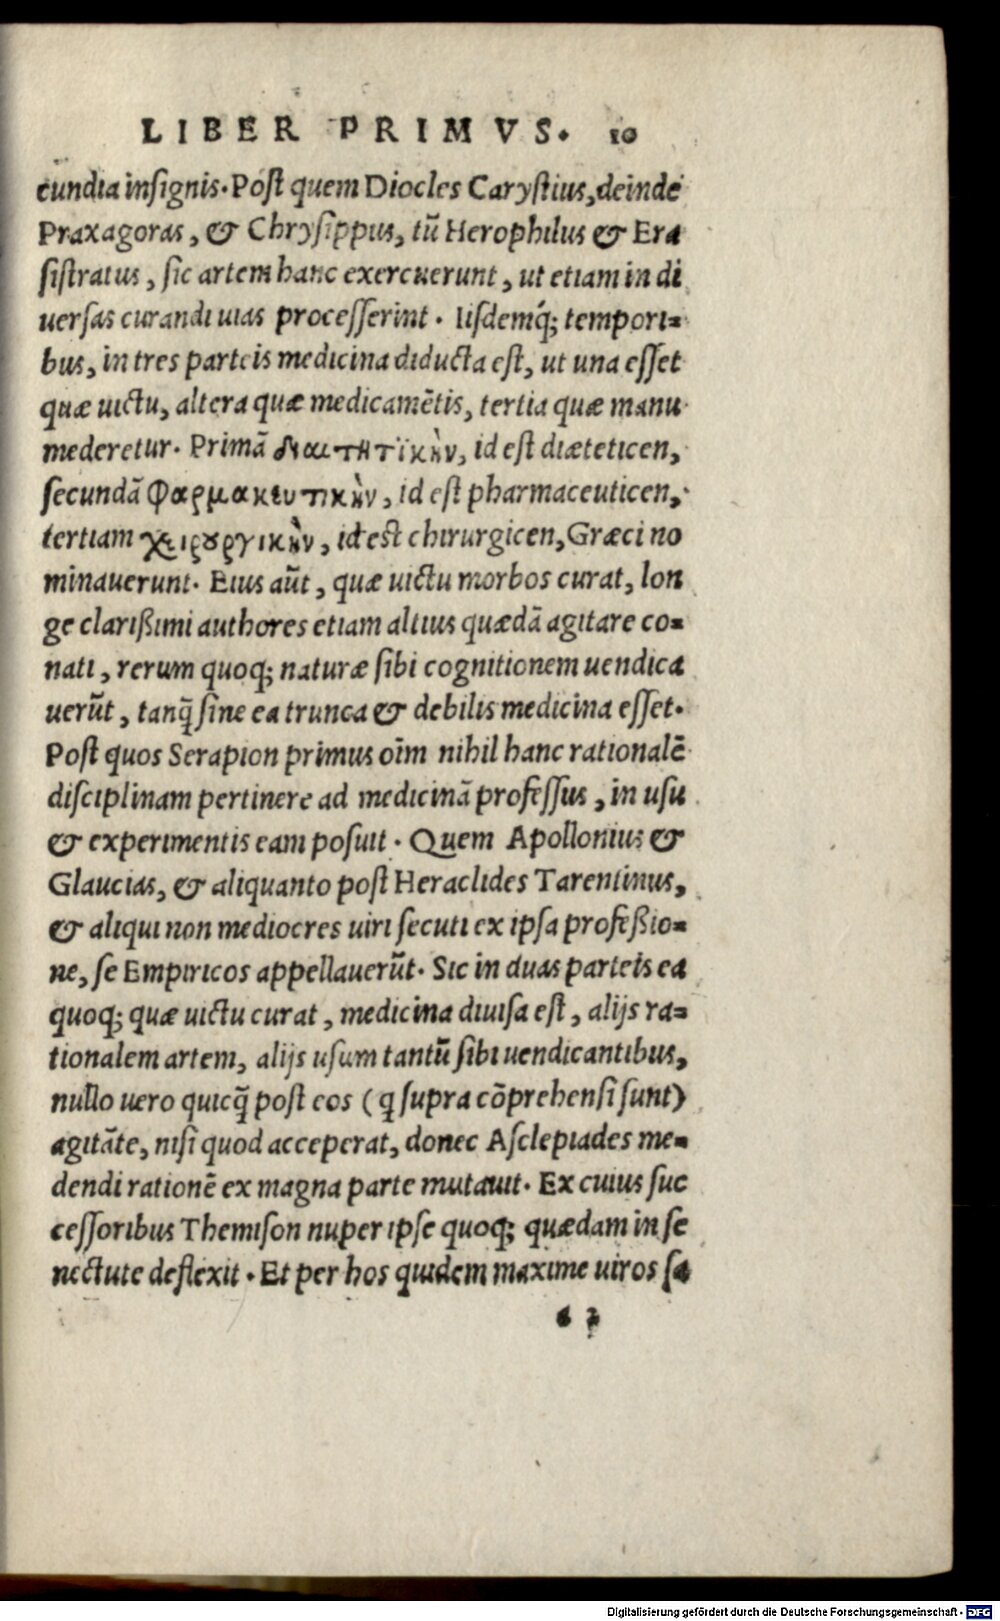 LIBER PRIMVS. 10
cundia insignis. Post quem Diocles Carystius, deinde
Praxagoras, & Chrysippus, tũ Herophilus & Era
sistratus, sic artem hanc exercuerunt, ut etiam in di
uersas curandi uias processerint. Iisdemq́; tempori=
bus, in tres parteis medicina diducta est, ut una esset
quæ uictu, altera quæ medicamẽtis, tertia quæ manu
mederetur. Primã διαιτητϊκὴν, id est diæteticen,
secundã Φαρμακευτικὴν, id est pharmaceuticen,
tertiam χειρȣργικὴν, id est chirurgicen, Græci no
minauerunt. Eius aũt, quæ uictu morbos curat, lon
ge clarißimi authores etiam altius quædã agitare co=
nati, rerum quoq; naturæ sibi cognitionem uendica
uerũt, tanq̃ sine ea trunca & debilis medicina esset.
Post quos Serapion primus oĩm nihil hanc rationalẽ
disciplinam pertinere ad medicinã professus, in usu
& experimentis eam posuit. Quem Apollonius &
Glaucias, & aliquanto post Heraclides Tarentinus,
& aliqui non mediocres uiri secuti ex ipsa profeßio=
ne, se Empiricos appellauerũt. Sic in duas parteis ea
quoq; quæ uictu curat, medicina diuisa est, alijs ra=
tionalem artem, alijs usum tantũ sibi uendicantibus,
nullo uero quicq̃ post eos (q̃ supra cõprehensi sunt)
agitãte, nisi quod acceperat, donec Asclepiades me=
dendi rationẽ ex magna parte mutauit. Ex cuius suc
cessoribus Themison nuper ipse quoq; quædam in se
nectute deflexit. Et per hos quidem maxime uiros sa
2
Digitalisierung gefördert durch die Deutsche Forschungsgemeinschaft - DFG